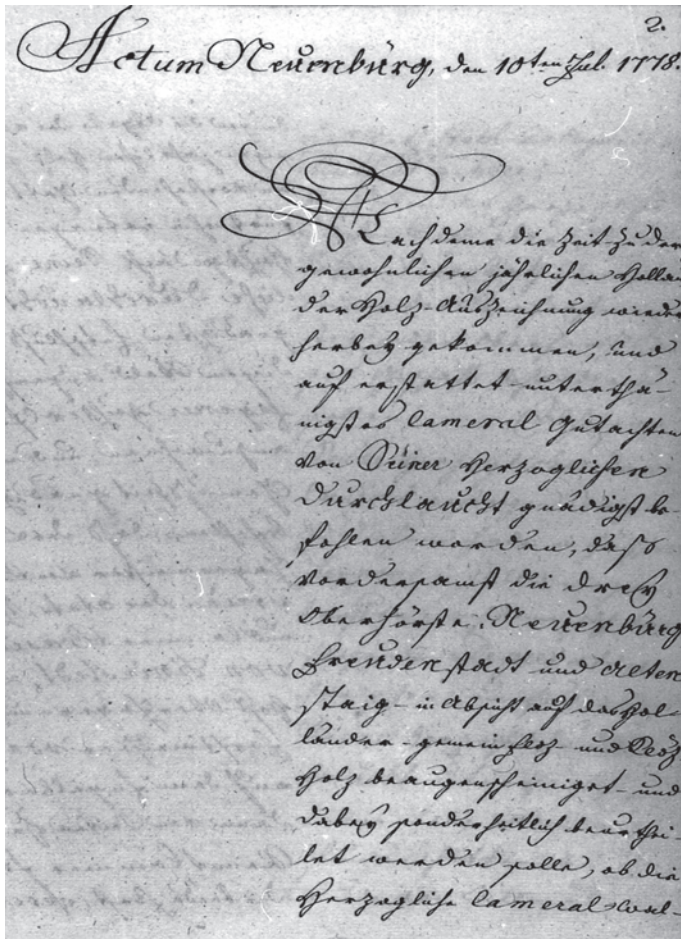 2.
Actum Neuenbürg, den 10ten Jul. 1778.
Nachdeme die Zeit zu der
gewohnlichen jährlichen Hollan
der Holz-Auszeichnung wieder
herbey gekommen, und
auf erstattet-unterthä-
nigstes Cameral Gutachten
von Seiner Herzoglichen
Durchlaucht gnädigst be-
fohlen worden, dass
vordersamst die drey
Oberförste, Neuenbürg
Freudenstadt und Alten
staig - in Absicht auf das Hol-
länder-gemein Floz- und Kloz
Holz beaugenscheiniget - und
dabey sonderheitlich beurthei-
let werden solle, ob die
Herzogliche Cameral-Wal-